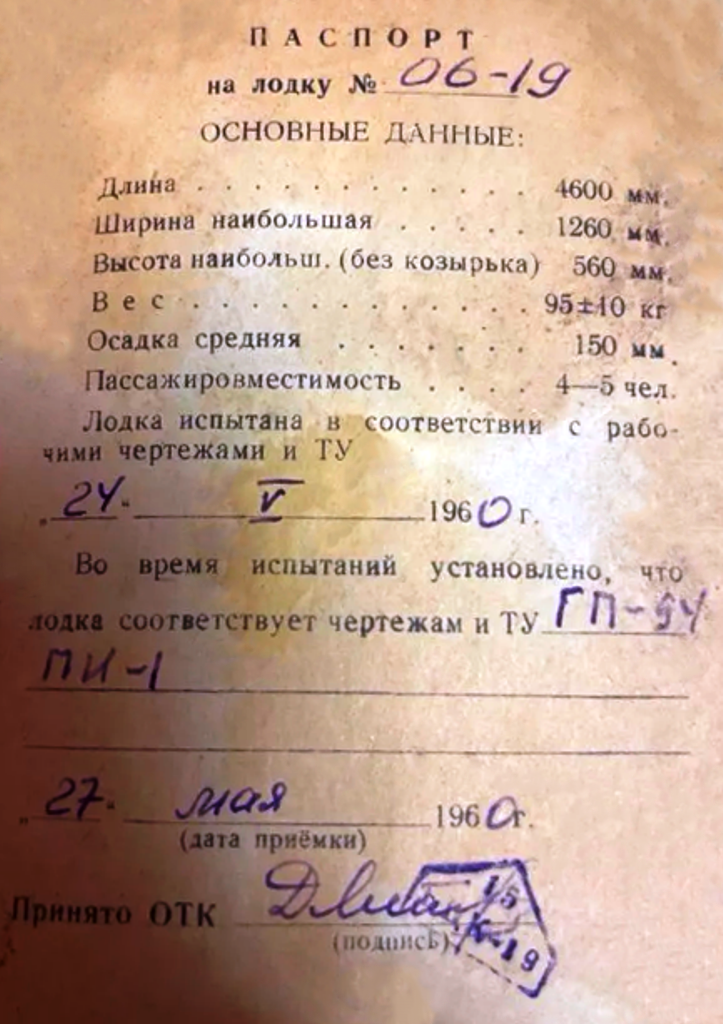 ПАСПОРТ
на лодку № 06-19
ОСНОВНЫЕ ДАННЫЕ:
Длина . . . . . . . . . . . . 4600 мм.
Ширина наибольшая . . . . . 1260 мм.
Высота наибольш. (без козырька) 560 мм.
Вес . . . . . . . . . . . . 95±10 кг
Осадка средняя . . . . . . 150 мм.
Пассажировместимость . . . . 4—5 чел.
Лодка испытана в соответствии с рабо-
чими чертежами и ТУ
„24“ V 1960 г.
Во время испытаний установлено, что
лодка соответствует чертежам и ТУ ГП-94
ПИ-1
„27“ мая 1960г.
(дата приёмки)
Принято ОТК
(подпись)
15
К-19